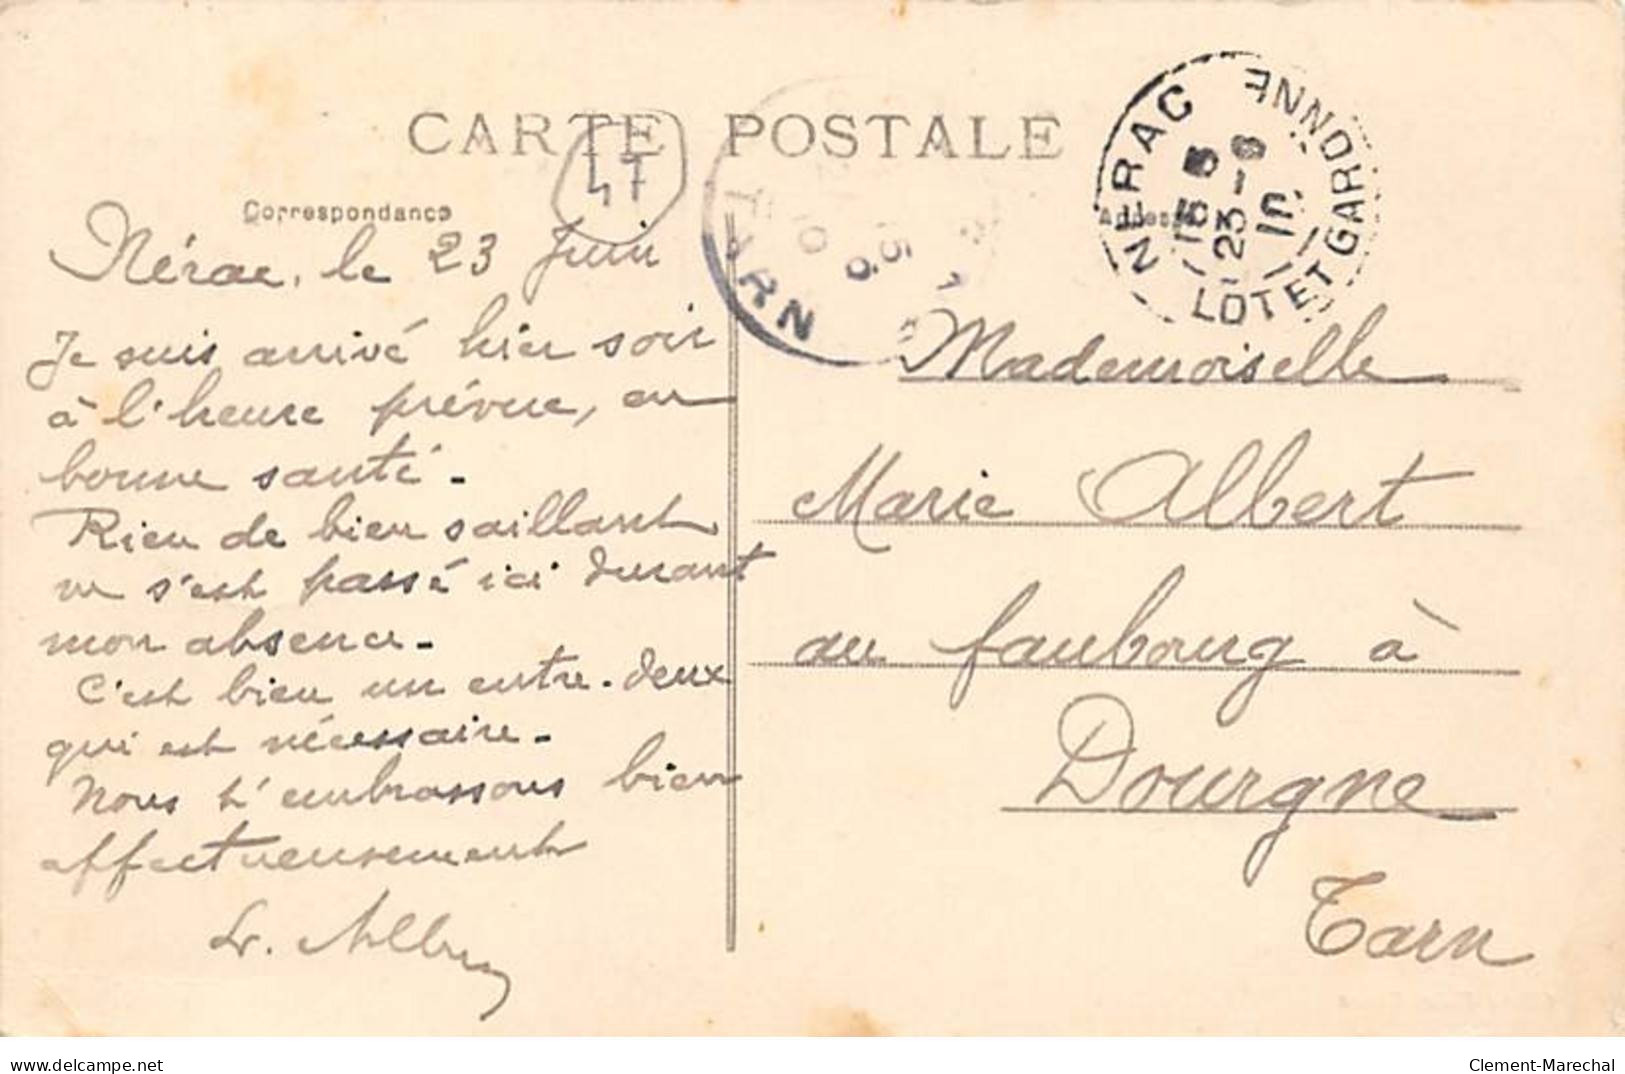 CARTE POSTALE
47
Correspondance
NERAC
LOT ET GARONNE
23-6
10
TARN
Nérac, le 23 Juin
Je suis arrivé hier soir
à l'heure prévue, en
bonne santé.
Rien de bien saillant
ne s'est passé ici durant
mon absence.
C'est bien un entre-deux
qui est nécessaire.
Nous t'embrassons bien
affectueusement
Mademoiselle
Marie Albert
au faubourg à
Dourgne
Tarn
delcampe.net
Clement-Marechal